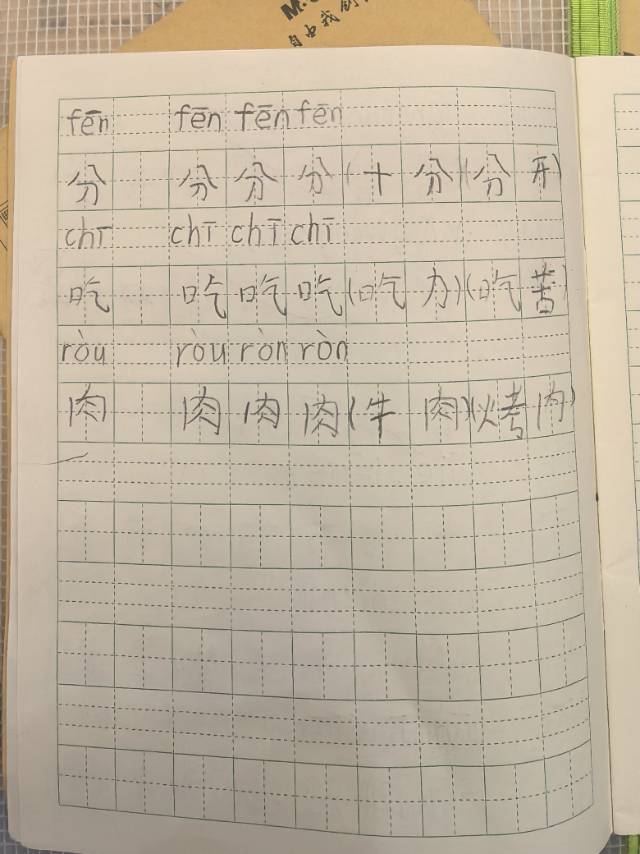 M.
自由我
fēn fēn fēn fēn
分 分 分 分 (十 分 (分 开)
chī chī chī chī
吃 吃 吃 吃 (吃 力) (吃 苦)
ròu ròu ròn ròn
肉 肉 肉 肉 (牛 肉) (烤 肉)